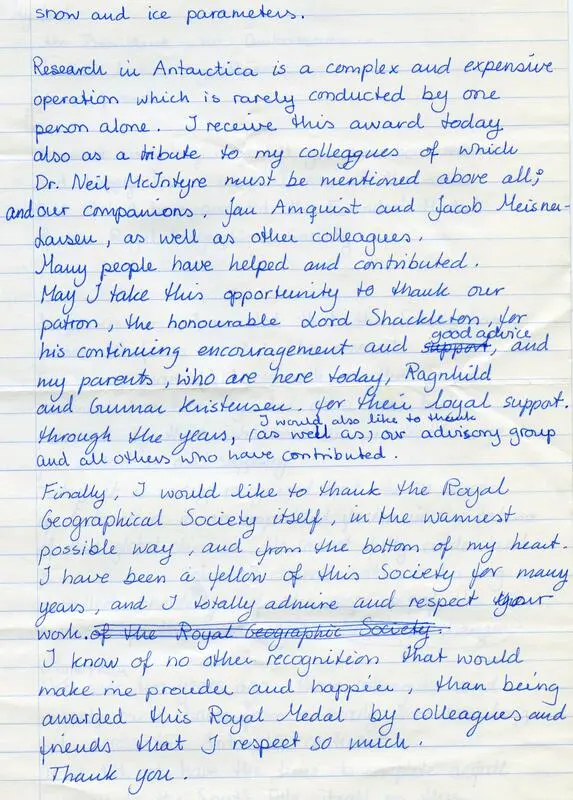 snow and ice parameters.
Research in Antarctica is a complex and expensive
operation which is rarely conducted by one
person alone. I receive this award today
also as a tribute to my colleggues of which
Dr. Neil McIntyre must be mentioned above all;
and our companions. Jan Amquist and Jacob Meisner-
Larsen, as well as other colleagues.
Many people have helped and contributed.
May I take this opportunity to thank our
patron, the honourable Lord Shackleton, for
good advice
his continuing encouragement and support, and
my parents, who are here today, Ragnhild
and Gunnar Kristensen. for their loyal support.
I would also like to thank
through the years, (as well as) our advisory group
and all others who have contributed.
Finally, I would like to thank the Royal
Geographical Society itself, in the warmest
possible way, and from the bottom of my heart.
I have been a fellow of this Society for many
years, and I totally admire and respect your
work. of the Royal Geographic Society.
I know of no other recognition that would
make me prouder and happier, than being
awarded this Royal Medal by colleagues and
friends that I respect so much.
Thank you.